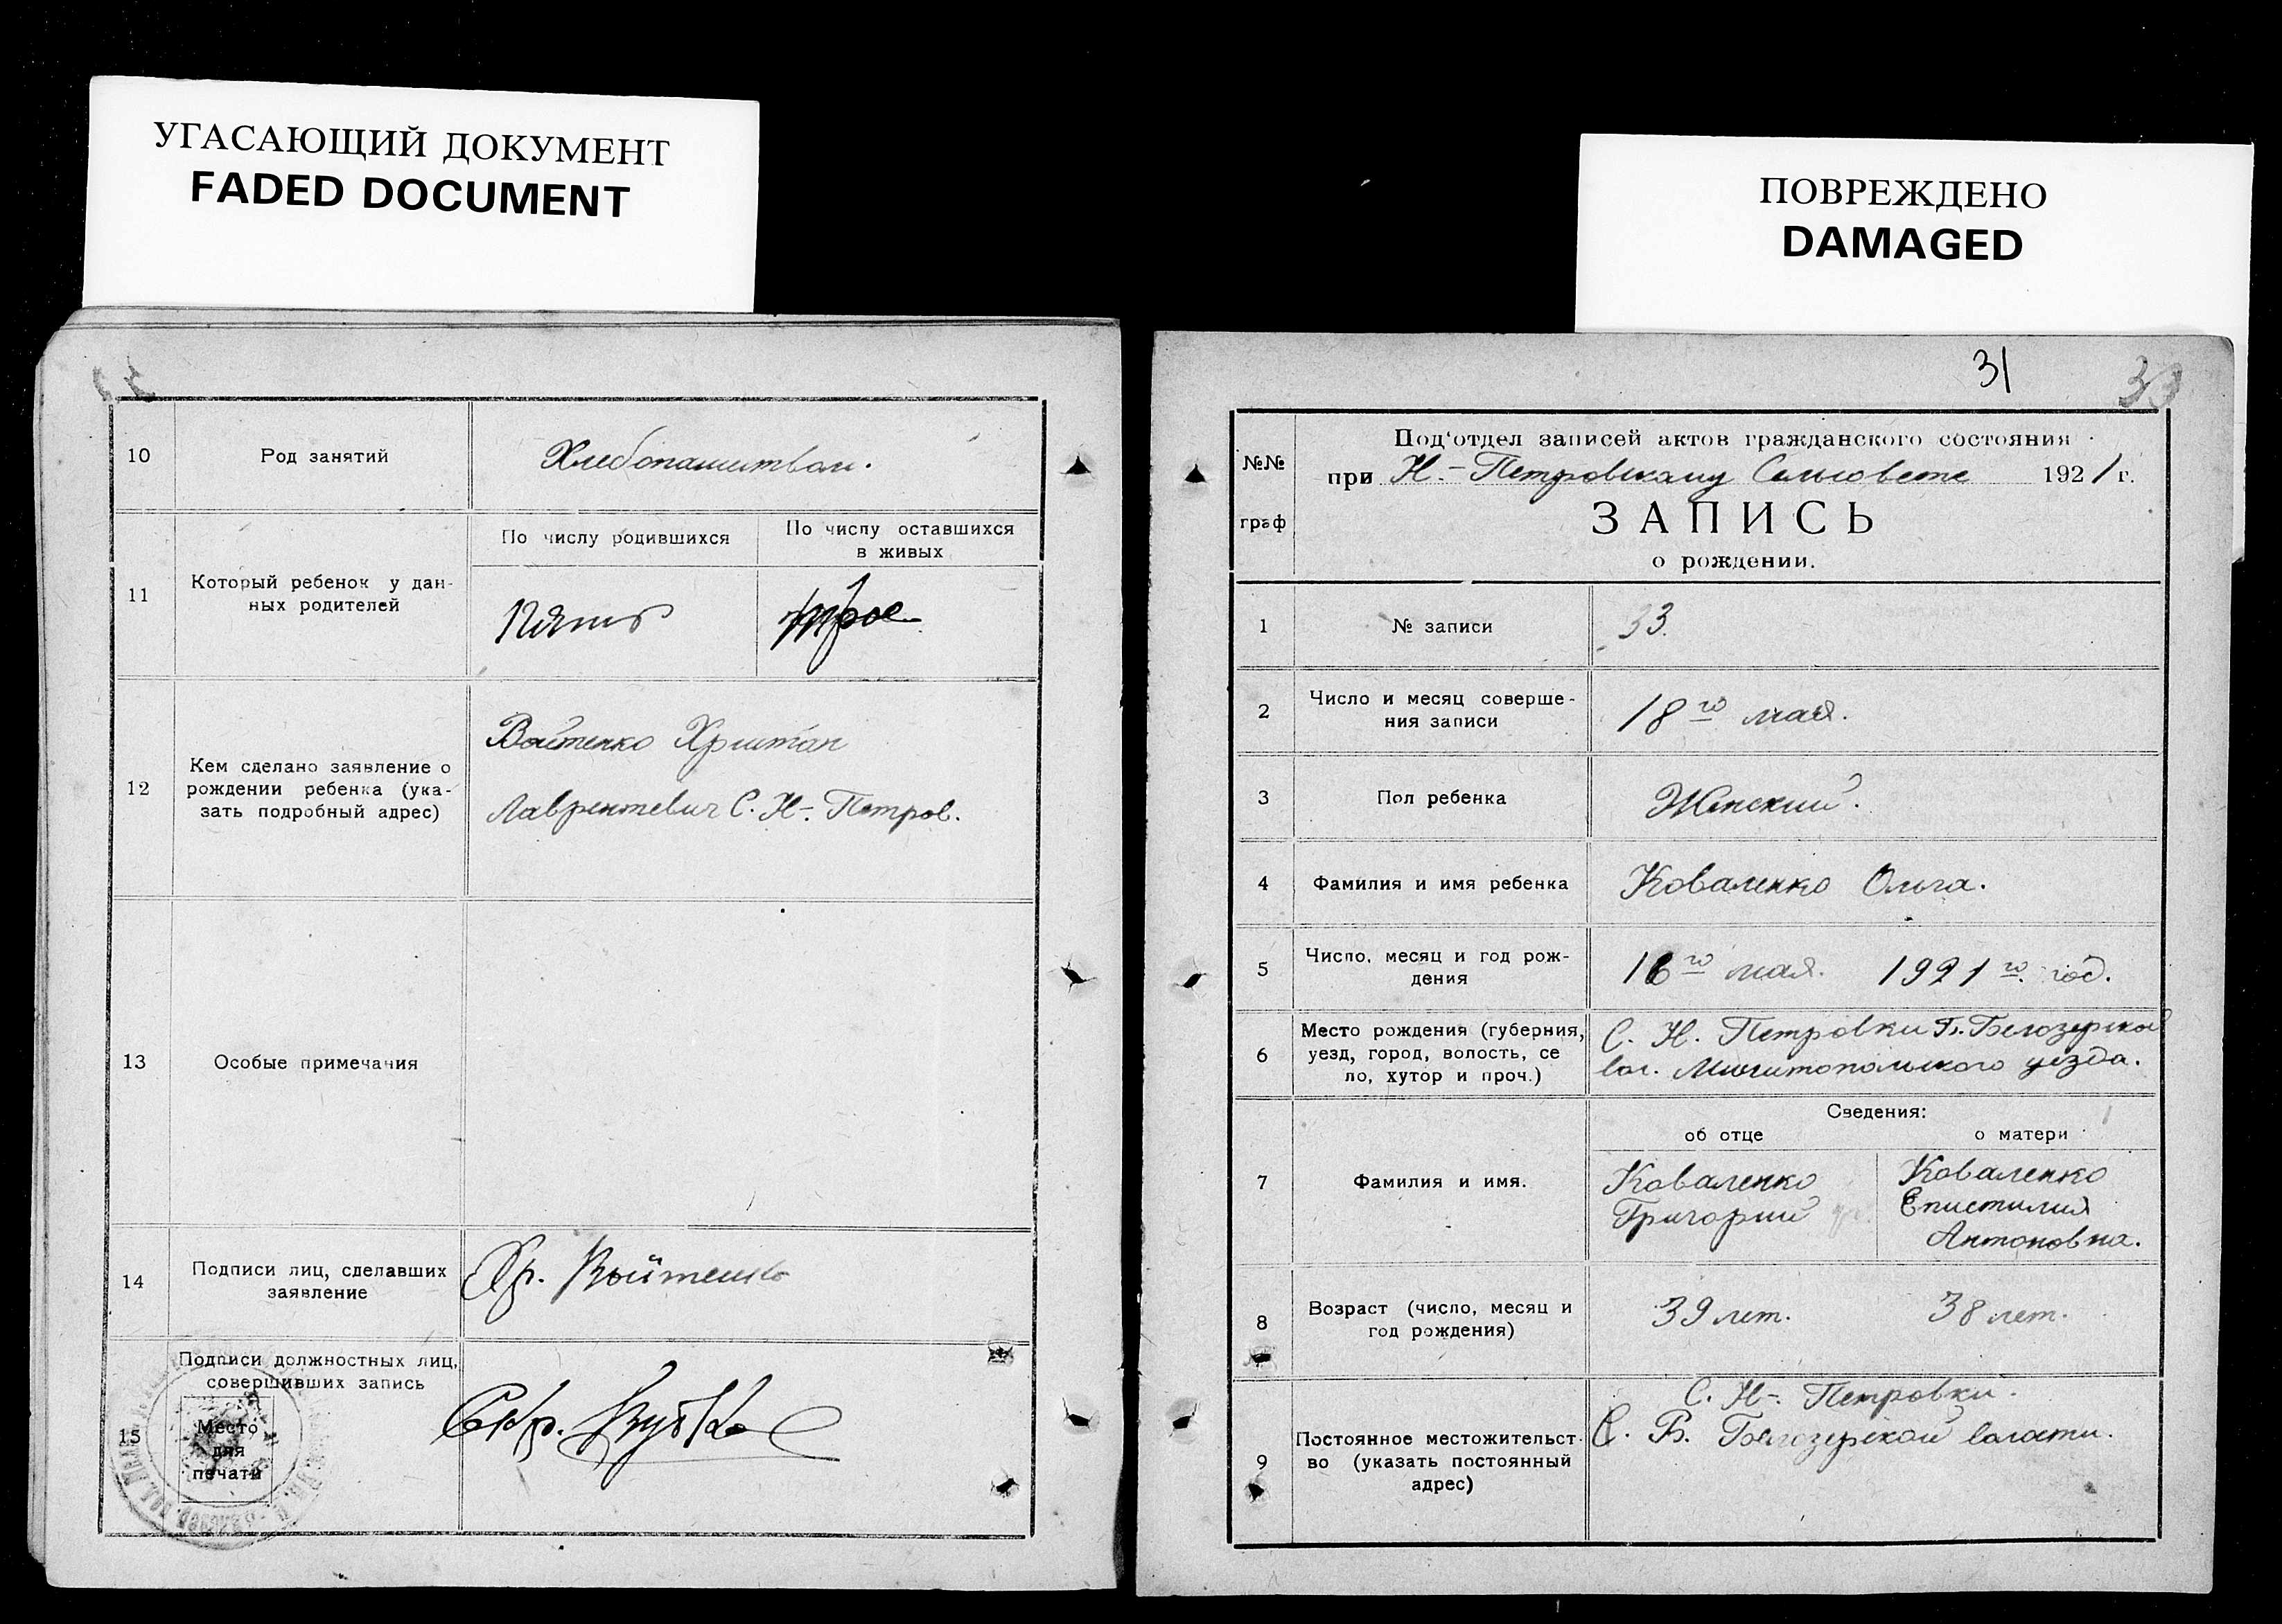 УГАСАЮЩИЙ ДОКУМЕНТ
FADED DOCUMENT
10
Род занятий
Хлебопашитвом.
11
Который ребенок у дан-
ных родителей
По числу родившихся
По числу оставшихся
в живых
Пять
трое
12
Кем сделано заявление о
рождении ребенка (ука-
зать подробный адрес)
Войтенко Христан
Лаврентевич С. Н-. Петров.
13
Особые примечания
14
Подписи лиц, сделавших
заявление
Хр. Войтенко
15
Подписи должностных лиц,
совершивших запись
Место
для
печати
Секр.
ПОВРЕЖДЕНО
DAMAGED
31
33
№№
граф
Под'отдел записей актов гражданского состояния
при Н.-Петровскому Сельсовете 1921 г.
ЗАПИСЬ
о рождении.
1
№ записи
33.
2
Число и месяц соверше-
ния записи
18го мая.
3
Пол ребенка
Женский.
4
Фамилия и имя ребенка
Коваленко Ольга.
5
Число, месяц и год рож-
дения
16го мая. 1921го. год.
6
Место рождения (губерния,
уезд, город, волость, се
ло, хутор и проч.)
С. Н. Петровки Б. Белозерской
вол. Мелитопольского уезда.
Сведения:
об отце
о матери
7
Фамилия и имя.
Коваленко
Григорий
Коваленко
Епистилия
Антоновна.
8
Возраст (число, месяц и
год рождения)
39 лет.
38 лет.
9
Постоянное местожительст-
во (указать постоянный
адрес)
С. Н-. Петровки.
С. Б. Белозерской волости.